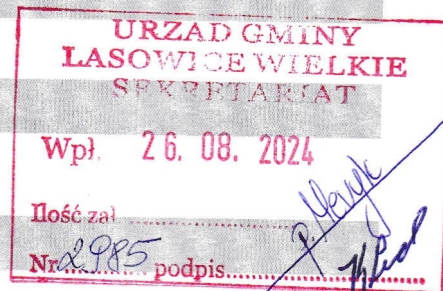 URZĄD GMINY
LASOWICE WIELKIE
SEKRETARIAT
Wpł. 26. 08. 2024
Ilość zał.
Nr 2985 podpis